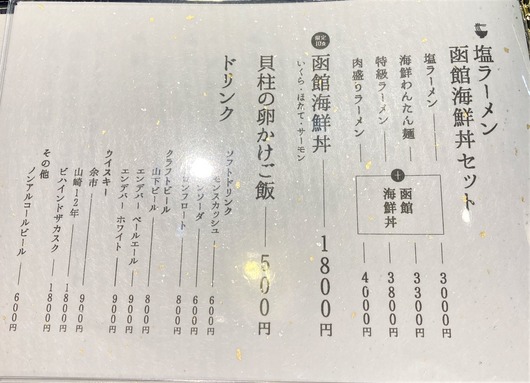 塩ラーメン
函館海鮮丼セット
塩ラーメン 3000円
海鮮わんたん麺 3300円
特級ラーメン 3800円
肉盛りラーメン 4000円
+
函館
海鮮丼
限定
函館海鮮丼 1800円
いくら・ほたて・サーモン
貝柱の卵かけご飯 500円
ドリンク
ソフトドリンク
モンスカッシュ 600円
ンソーダ 600円
ンフロート 800円
クラフトビール
山下ビール 800円
エンデバー ペールエール 900円
エンデバー ホワイト 900円
ウイスキー
余市 900円
山崎12年 1800円
ビハインドザカスク 1800円
その他
ノンアルコールビール 600円